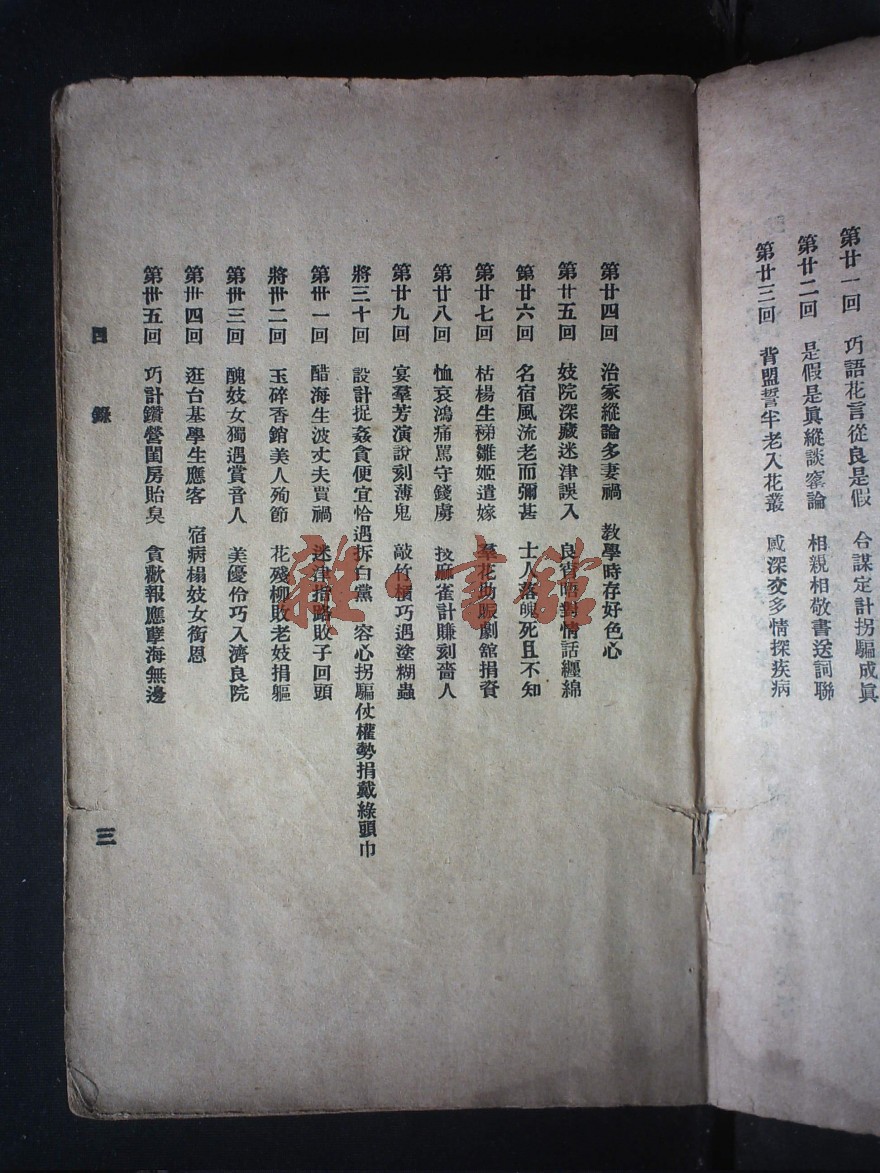 第廿一回 巧語花言從良是假 合謀定計拐騙成眞
第廿二回 是假是眞縱談寡論 相親相敬書送詞聯
第廿三回 背盟誓半老入花叢 感深交多情探疾病
第廿四回 治家縱論多妻禍 教學時存好色心
第廿五回 妓院深藏迷津誤入 良宵晤對情話纏綿
第廿六回 名宿風流老而彌甚 士人落魄死且不知
第廿七回 枯楊生稊雛姬遣嫁 羣花助賑劇舘捐資
第廿八回 恤哀鴻痛罵守錢虜 技麻雀計賺刻嗇人
第廿九回 宴羣芳演說刻薄鬼 敲竹槓巧遇塗糊蟲
將三十回 設計捉姦貪便宜恰遇拆白黨 容心拐騙仗權勢捐戴綠頭巾
第卅一回 醋海生波丈夫買禍 迷津指路敗子回頭
將卅二回 玉碎香銷美人殉節 花殘柳敗老妓捐軀
第卅三回 醜妓女獨遇賞音人 美優伶巧入濟良院
第卅四回 逛台基學生應客 宿病榻妓女銜恩
第卅五回 巧計鑽營閨房貽臭 貪歡報應孽海無邊
目錄
三
雜·書館